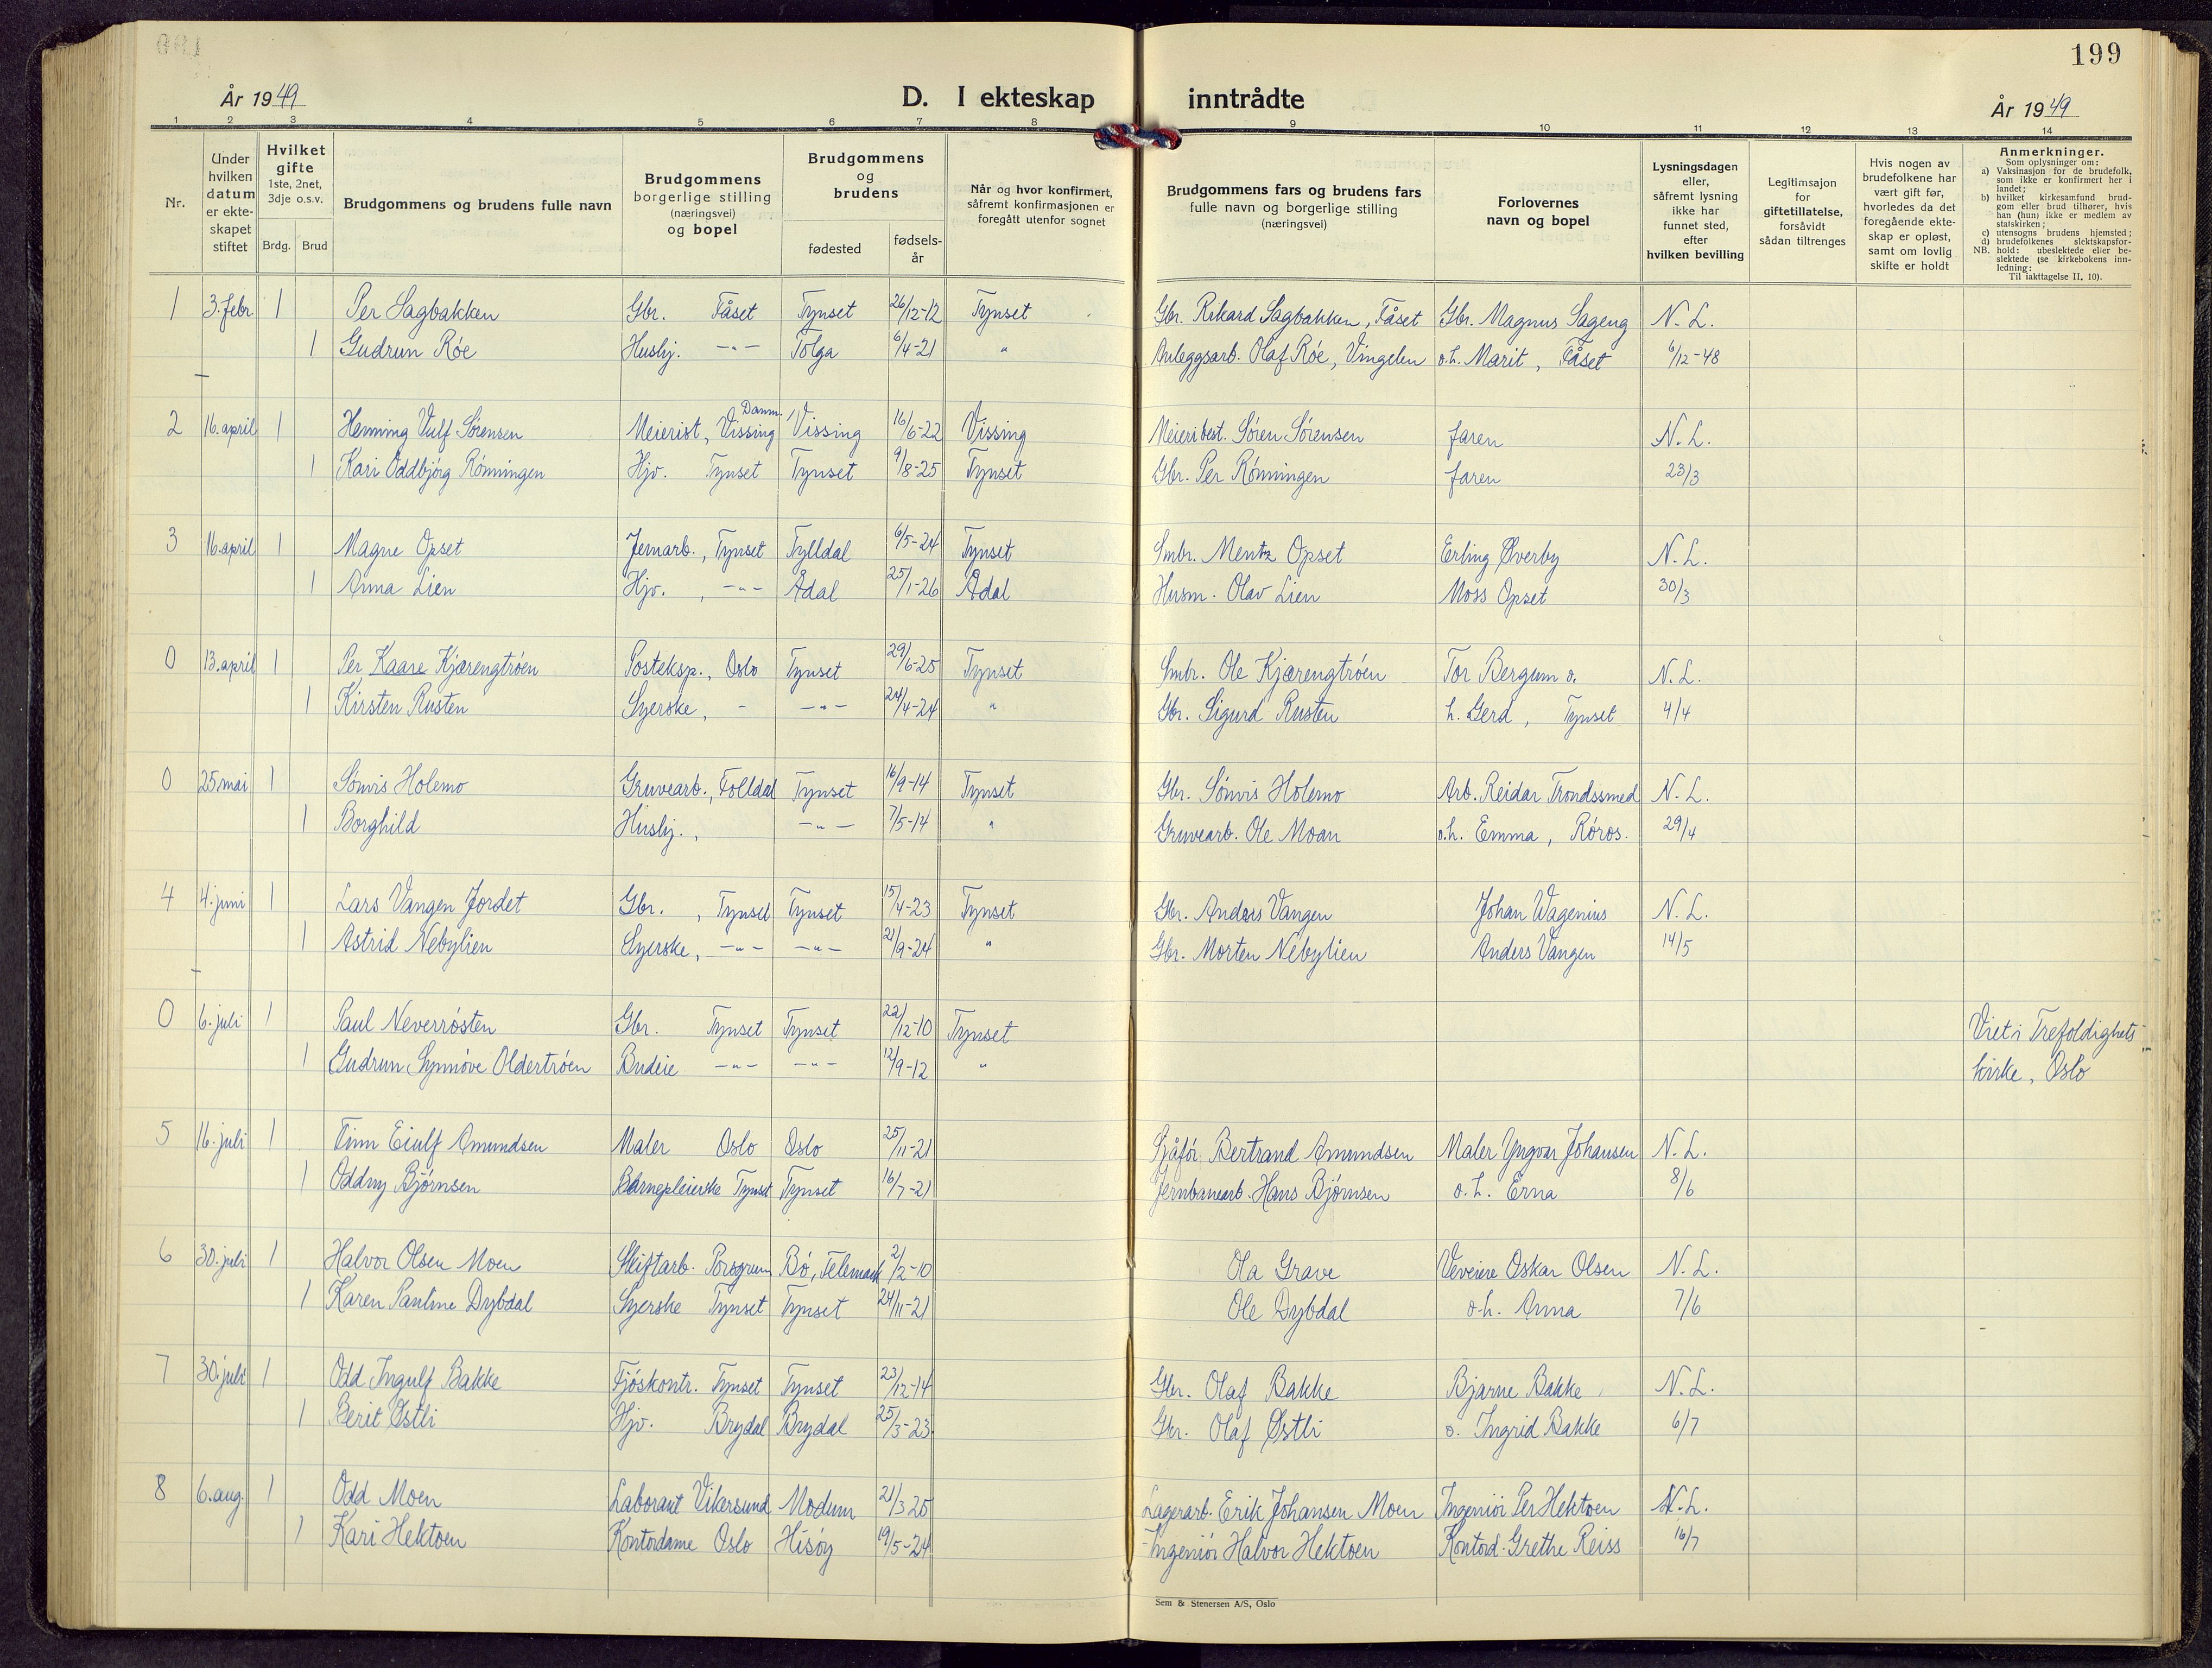 199
År 1949
D. I ekteskap inntrådte
År 1949
1 2 3 4 5 6 7 8 9 10 11 12 13 14
Nr.
Under hvilken datum er ekteskapet stiftet
Hvilket gifte 1ste, 2net, 3dje o.s.v.
Brdg. Brud
Brudgommens og brudens fulle navn
Brudgommens borgerlige stilling (næringsvei) og bopel
Brudgommens og brudens
fødested
fødselsår
Når og hvor konfirmert, såfremt konfirmasjonen er foregått utenfor sognet
Brudgommens fars og brudens fars fulle navn og borgerlige stilling (næringsvei)
Forlovernes navn og bopel
Lysningsdagen eller, såfremt lysning ikke har funnet sted, efter hvilken bevilling
Legitimsajon for giftetillatelse, forsåvidt sådan tiltrenges
Hvis nogen av brudefolkene har vært gift før, hvorledes da det foregående ekteskap er opløst, samt om lovlig skifte er holdt
Anmerkninger.
Som oplysninger om:
a) Vaksinasjon for de brudefolk, som ikke er konfirmert her i landet;
b) hvilket kirkesamfund brudgom eller brud tilhører, hvis han (hun) ikke er medlem av statskirken;
c) utensogns brudens hjemsted;
d) brudefolkenes slektskapsforhold: ubeslektede eller beslektede (se kirkebokens innledning:
NB. Til iakttagelse II, 10).
1 3. febr 1 Per Sagbakken Gbr. Fåset Tynset 26/12-12 Tynset Gbr. Rikard Sagbakken, Fåset Gbr. Magnus Sageng N. L.
1 Gudrun Róe Husbj. -"- Tolga 6/4-21 " Anleggsarb. Olaf Róe, Vingelen o.h. Marit, Fåset 6/12-48
2 16. april 1 Henning Vulf Sörensen Meierist, Vissing Danm. Vissing 16/6-22 Vissing Meieribest. Sören Sörensen faren N. L.
1 Kari Oddbjórg Rónningen Hjv. Tynset Tynset 9/8-25 Tynset Gbr. Per Rónningen faren 23/3
3 16. april 1 Magne Opset Jernarb., Tynset Tylldal 6/5-24 Tynset Smbr. Mentz Opset Erling Øverby N. L.
1 Anna Lien Hjv. , -"- Ådal 25/1-26 Ådal Husm. Olav Lien Moss Opset 30/3
0 13. april 1 Per Kaare Kjærengtróen Posteksp., Oslo Tynset 29/6-25 Tynset Smbr. Ole Kjærengtróen Tor Bergum o. N. L.
1 Kirsten Rusten Syerske, - -"- 24/4-24 " Gbr. Sigurd Rusten h. Gerd, Tynset 4/4
0 25 mai 1 Sónvis Holemo Gruvearb., Folldal Tynset 16/9-14 Tynset Gbr. Sónvis Holemo Arb. Reidar Trondssmed N. L.
1 Borghild Husbj., -"- 7/5-14 " Gruvearb. Ole Moan o.h. Emma, Róros. 29/4
4 4. juni 1 Lars Vangen Jordet Gbr. , Tynset Tynset 15/4-23 Tynset Gbr. Anders Vangen Johan Wagenius N. L.
1 Astrid Nebylien Syerske, -"- -"- 21/9-24 " Gbr. Morten Nebylien Anders Vangen 14/5
0 6. juli 1 Paul Neverrósten Gbr. Tynset Tynset 22/12-10 Tynset Viet i Trefoldighets-
1 Gudrun Synnóve Oldertróen Budeie -"- -"- 12/9-12 " kirke, Oslo
5 16. juli 1 Finn Eiulf Amundsen Maler Oslo Oslo 25/11-21 Sjåfór Bertrand Amundsen Maler Yngvar Johansen N. L.
1 Oddny Björnsen Barnepleierske Tynset Tynset 16/7-21 Jernbanearb. Hans Björnsen o. h. Erna 8/6
6 30. juli 1 Halvor Olsen Moen Skiftarb. Porsgrunn Bö, Telemark 2/2-10 Ola Grave Veveier Oskar Olsen N. L.
1 Karen Pauline Dybdal Syerske Tynset Tynset 24/11-21 Ole Dybdal o.h. Anna 7/6
7 30. juli 1 Odd Ingulf Bakke Fjóskontr. Tynset Tynset 23/12-14 Gbr. Olaf Bakke Bjarne Bakke N. L.
1 Berit Østli Hjv. Brydal Brydal 25/3-23 Gbr. Olaf Østli o. Ingrid Bakke 6/7
8 6. aug. 1 Odd Moen Laborant Vikersund Modum 21/3 25 Lagerarb. Erik Johansen Moen Ingeniór Per Hektoen N. L.
1 Kari Hektoen Kontordame Oslo Hisóy 19/5-24 Ingeniór Halvor Hektoen Kontord. Grethe Reiss 16/7
Sem & Stenersen A/S, Oslo